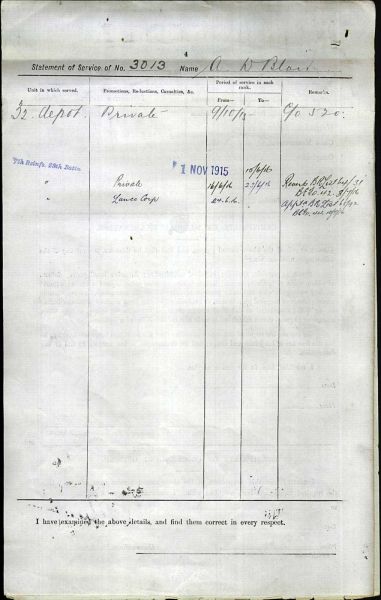 4
Statement of Service of No. 3013 Name A D Blair
Unit in which served. Promotions, Reductions, Casualties, &c. Period of service in each rank. Remarks.
From— To—
32 depot. Private 9/10/15 C/o 520.
7th Reinfs. 28th Battn 1 NOV 1915 15/6/16
" Private 16/6/16 23/6/16
" Lance Corp 24.6.16
I have examined the above details, and find them correct in every respect.